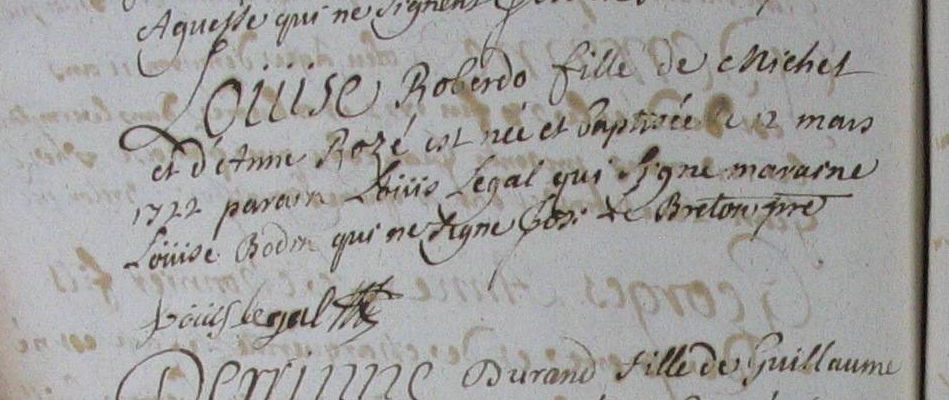 Aguesse qui ne signent
Louise Roberdo fille de Michel
et d'Anne Rozé est née et baptisée le 12 mars
1722 parain Loüis Legal qui signe maraine
Loüise Bodin qui ne signe Breton pre
Loüis Legal
Perrinne Durand fille de Guillaume